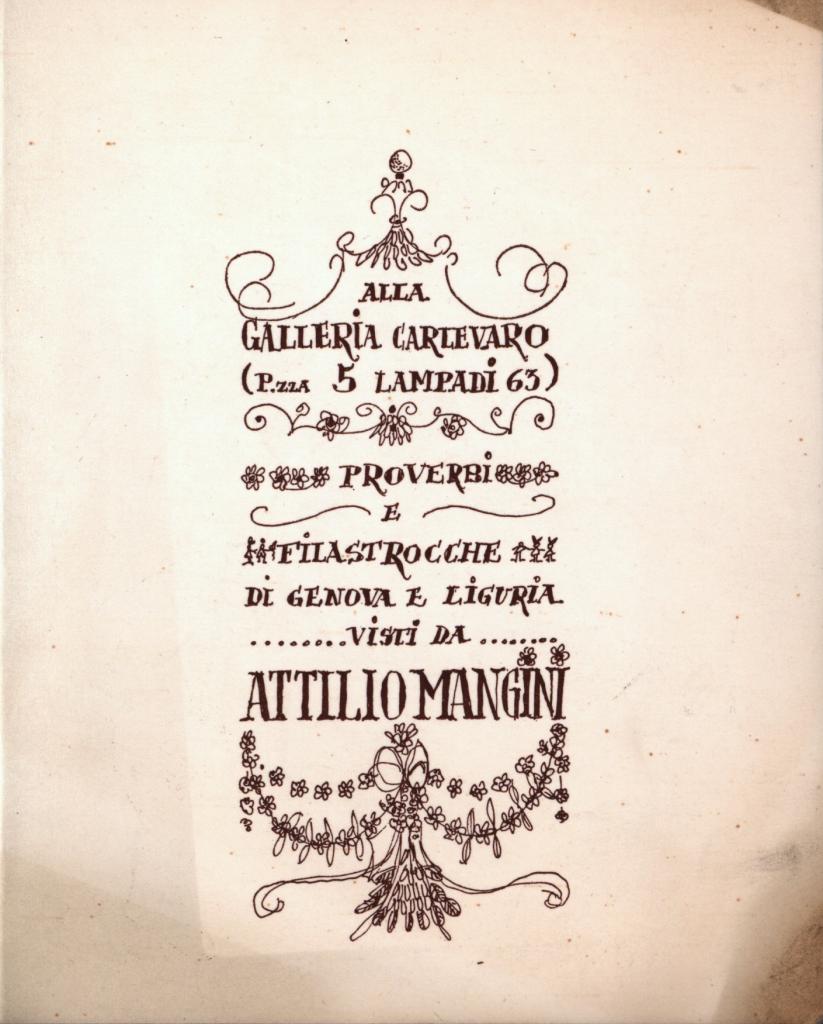 ALLA
GALLERIA CARTEVARO
(P.zza 5 LAMPADI 63)
PROVERBI
E
FILASTROCCHE
DI GENOVA E LIGURIA
.........VISTI DA ........
ATTILIO MANGINI